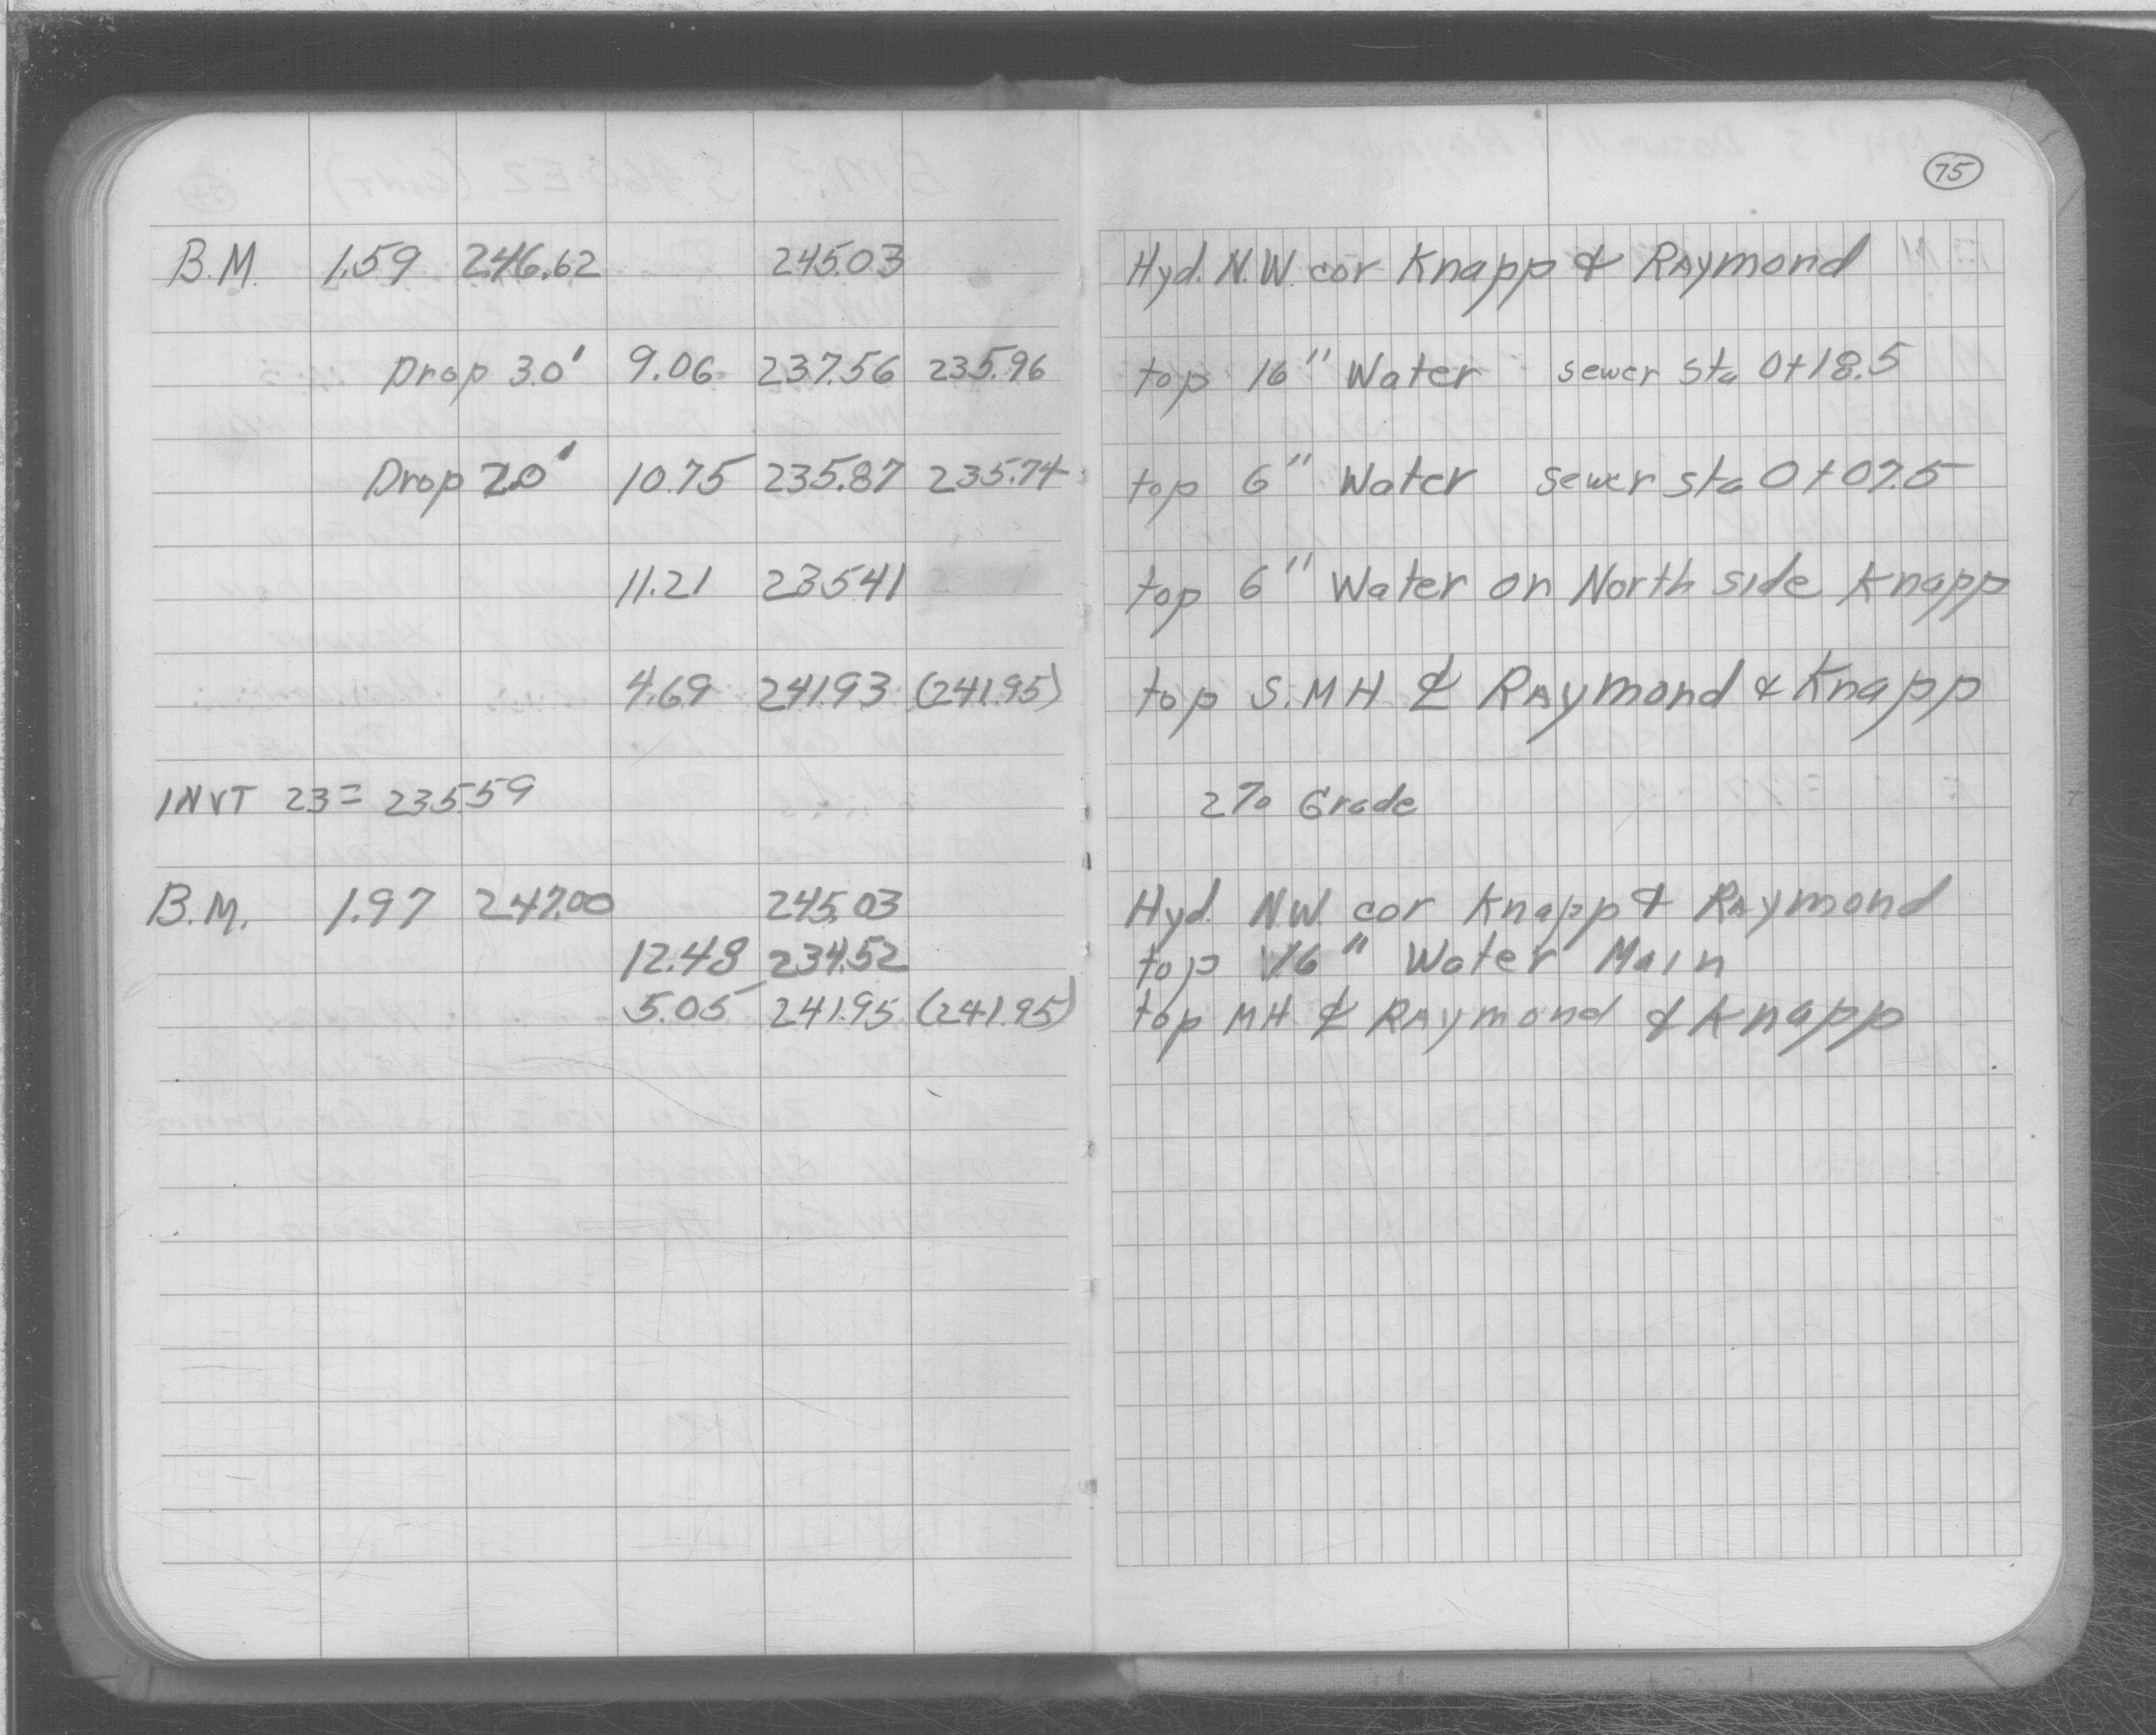 75
B.M. 1.59 246.62 245.03 Hyd. N.W. cor Knapp & Raymond
Drop 3.0' 9.06 237.56 235.96 top 16" Water sewer sta 0+18.5
Drop 2.0' 10.75 235.87 235.74 top 6" Water sewer sta 0+07.5
11.21 235.41 top 6" Water on North side Knapp
4.69 241.93 (241.95) top S.MH ℄ Raymond & Knapp
INVT 23= 235.59 2% Grade
B.M. 1.97 247.00 245.03 Hyd. N.W. cor Knapp & Raymond
12.48 234.52 top 16" Water Main
5.05 241.95 (241.95) top MH ℄ Raymond & Knapp